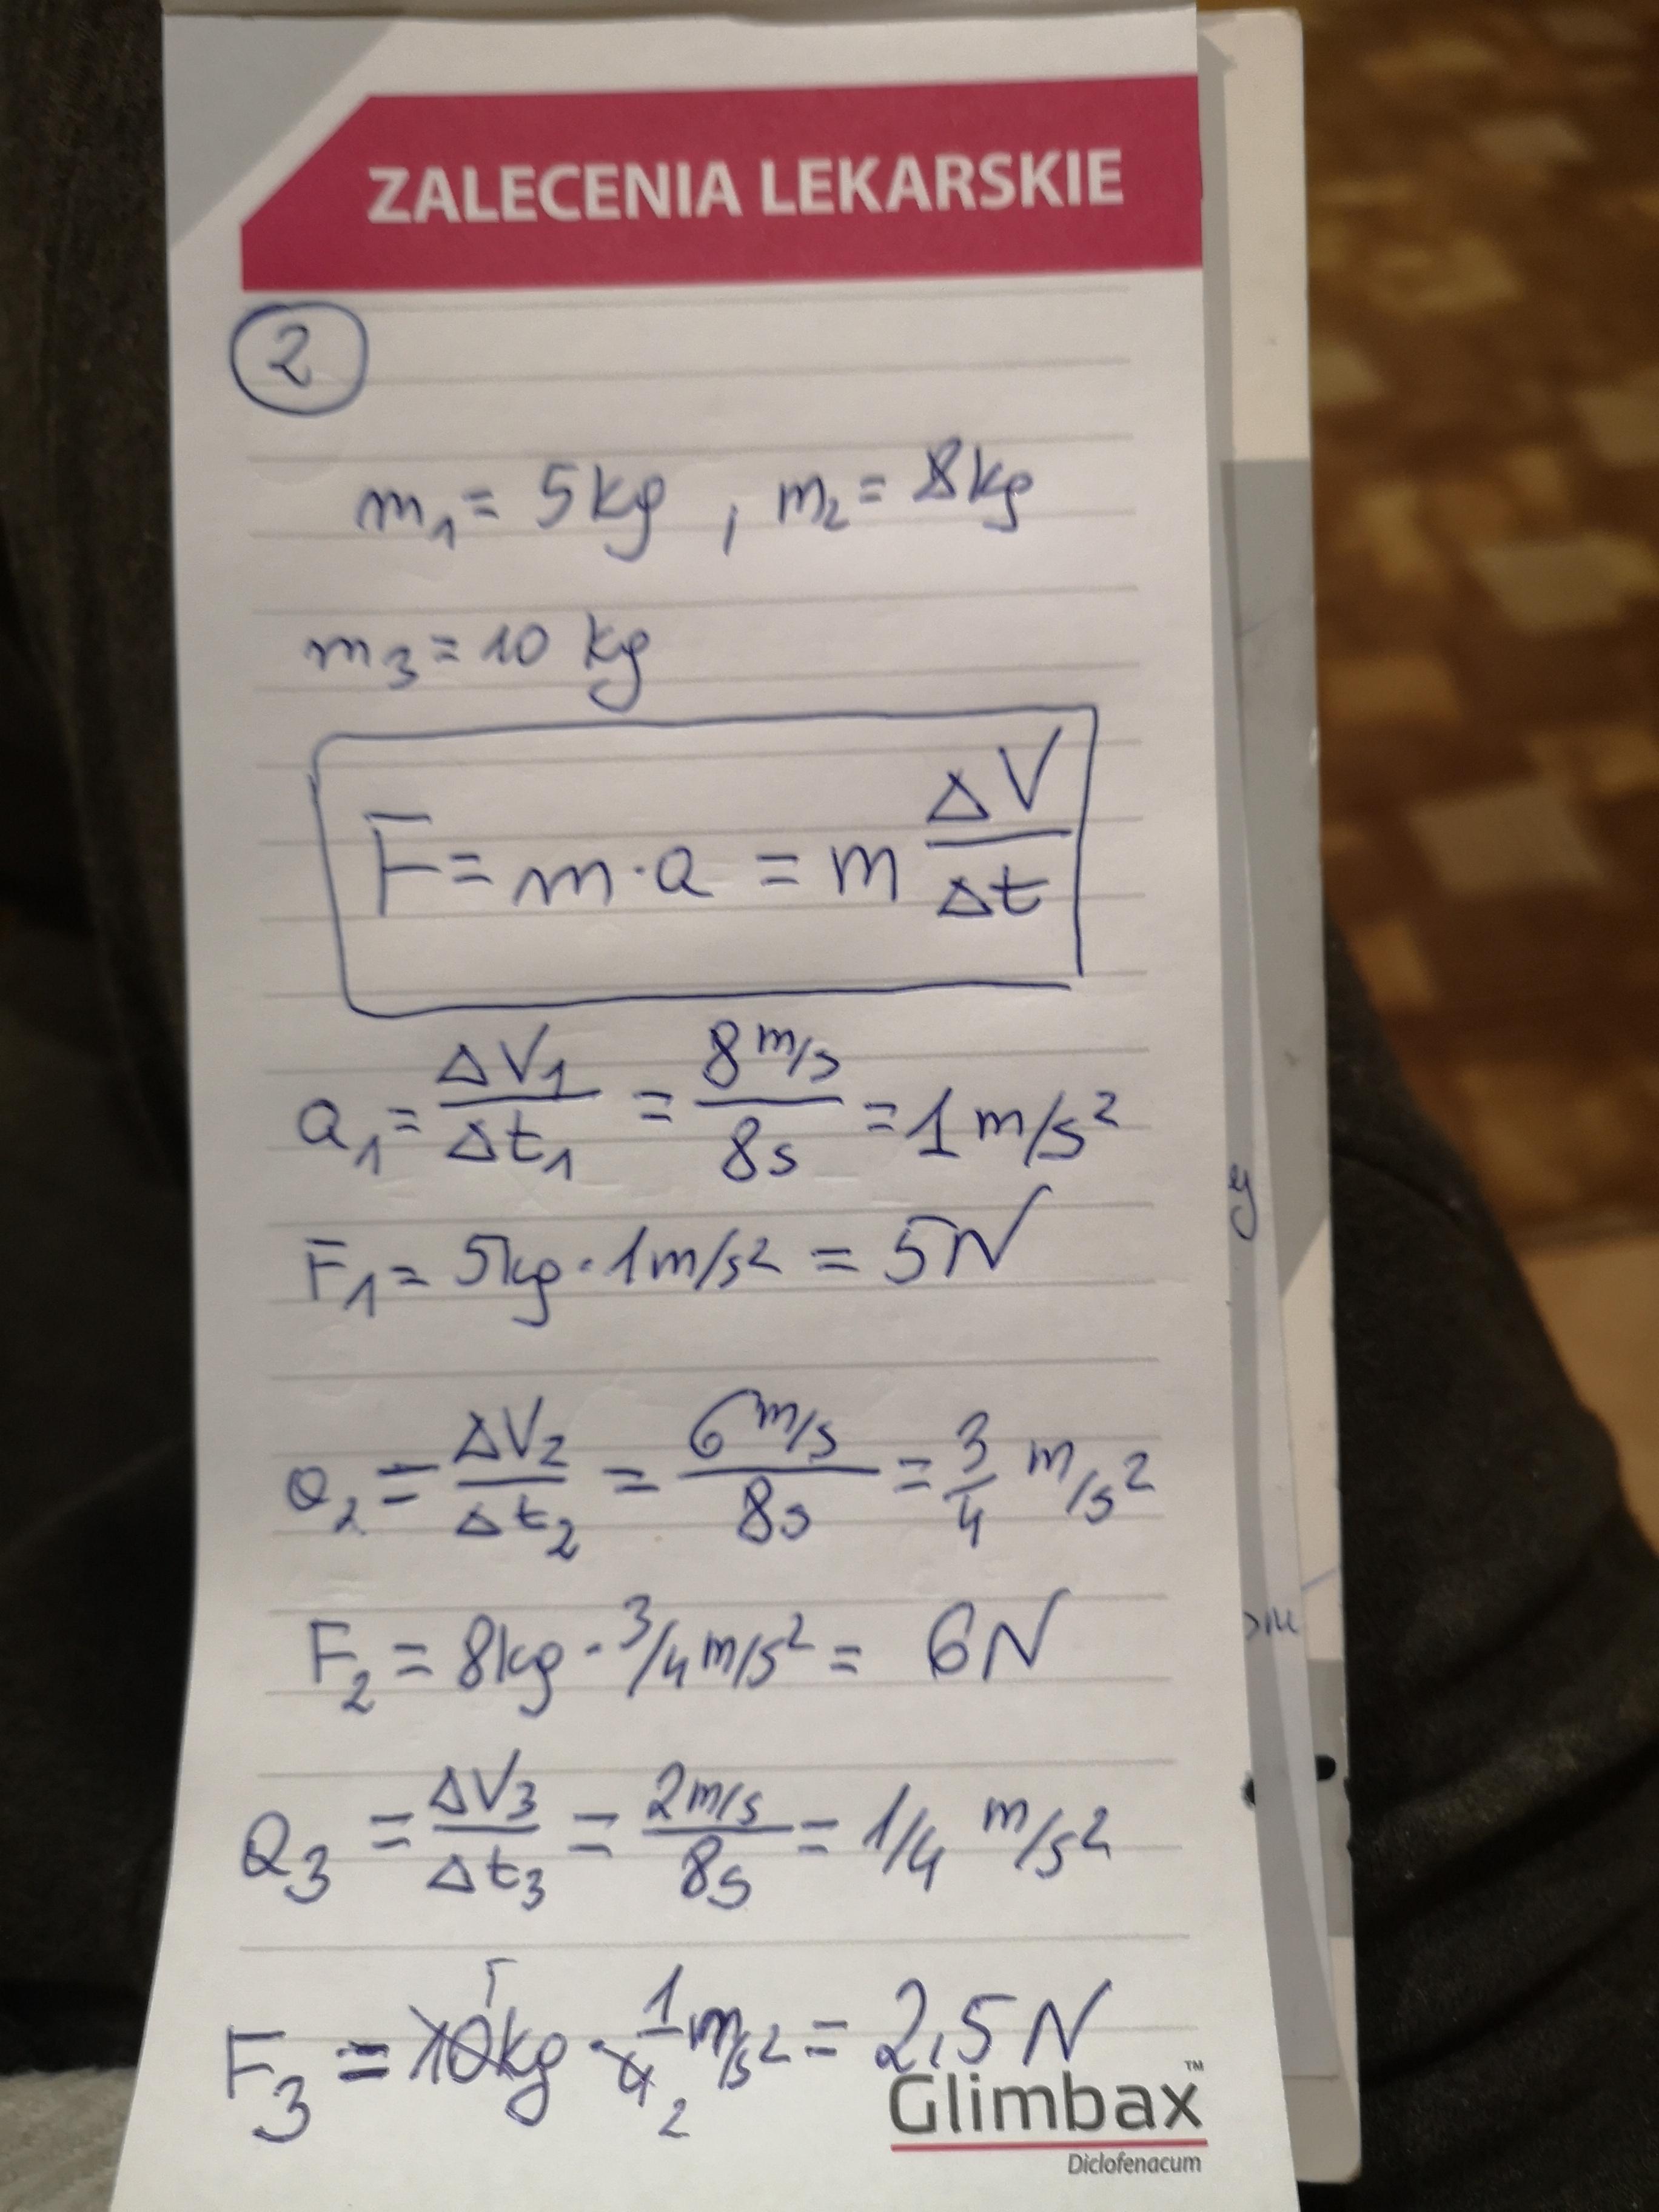 ZALECENIA LEKARSKIE
2
m₁ = 5kg , m₂ = 8kg
m₃ = 10 kg
F = m·a = m ΔV/Δt
a₁ = ΔV₁/Δt₁ = 8 m/s / 8s = 1 m/s²
F₁ = 5kg · 1m/s² = 5N
a₂ = ΔV₂/Δt₂ = 6 m/s / 8s = 3/4 m/s²
F₂ = 8kg · 3/4 m/s² = 6N
a₃ = ΔV₃/Δt₃ = 2m/s / 8s = 1/4 m/s²
5
F₃ = 10kg · 1/4 m/s² = 2,5 N
2
Glimbax™
Diclofenacum